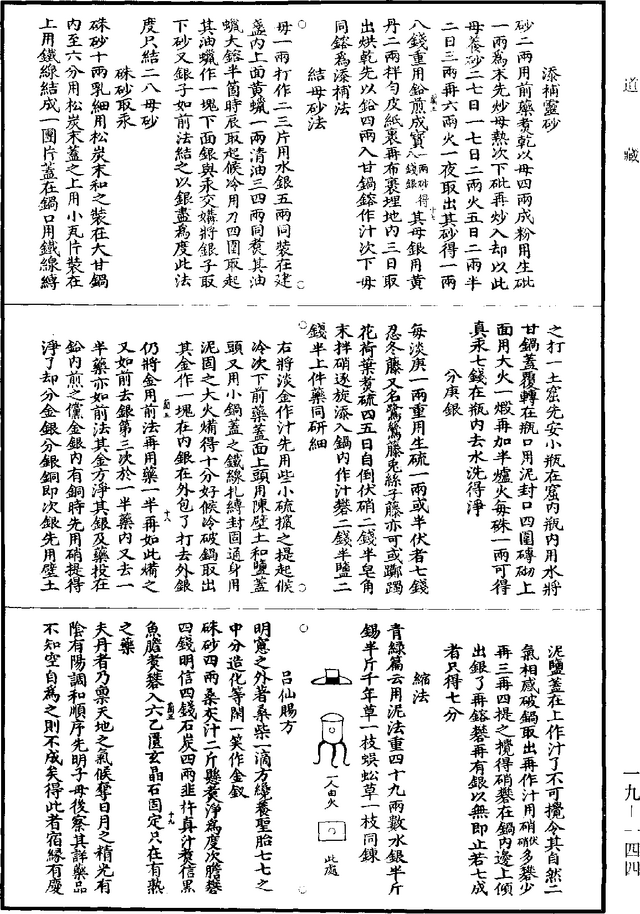 道藏
添補靈砂
砂二兩用前藥煑乾以母四兩成粉用生砒
一兩為末先炒母熱次下砒再炒入却以此
母養砂二七日一七日二兩火五日二兩半
二日三兩再六兩火一夜取出其砂得一兩
八錢重用鉛煎成寶一兩砂得八錢銀其母銀用黃
丹二兩拌勻皮紙裹再布裹埋地內三日取
出烘乾先以鉛四兩入甘鍋鎔作汁次下母
同鎔為添補法
結母砂法
母一兩打作二三片用水銀五兩同裝在建
盞內上面黃蠟一兩清油三四兩同煑其油
蠟大鎔半箇時辰取起候冷用刀四圍取起
其油蠟作一塊下面銀與汞交媾將銀子取
下砂又銀子如前法結之以銀盡為度此法
度只結二八母砂
硃砂取汞
硃砂十兩乳細用松炭末和之裝在大甘鍋
內至六分用松炭末蓋之上用小瓦片裝在
上用鐵線結成一團片蓋在鍋口用鐵線縛
之打一土窟先安小瓶在窟內瓶內用水將
甘鍋蓋覆轉在瓶口用泥封口四圍磚砌上
面用大火一煅再加半爐火每硃一兩可得
真汞七錢在瓶內去水洗得淨
分庚銀
每淡庚一兩重用生硫一兩或半伏者七錢
忍冬藤又名鷺鷥藤兎絲子藤亦可或躑躅
花荷葉煑硫四五日自倒伏硝二錢半皂角
末拌硝逐旋添入鍋內作汁礬二錢半鹽二
錢半上件藥同研細
右將淡金作汁先用些小硫攛之提起候
冷次下前藥蓋面上頭用陳壁土和鹽蓋
頭又用小鍋蓋之鐵線扎縛封固通身用
泥固之大火㷶得十分好候冷破鍋取出
其金作一塊在內銀在外包了打去外銀
仍將金用前法再用藥一半再如此㷶之
又如前去銀第三次於一半藥內又去一
半藥亦如前法其金方淨其銀及藥投在
鉛內煎之儻金銀內有銅時先用硝提得
淨了却分金銀分銀銅即次銀先用壁土
泥鹽蓋在上作汁了不可攪令其自然二
氣相感破鍋取出再作汁用硝伏硝多礬少
再三再四提之攪得硝礬在鍋內邊上傾
出銀了再鎔礬再有銀以無即止若七成
者只得七分
縮法
青綠篇云用泥法重四十九兩數水銀半斤
錫半斤千年草一枝蜈蚣草一枝同鍊
一人由火
此處
呂仙賜方
明窻之外者桑柴一滴方纔養聖胎七七之
中分造化等閑一笑作金釵
硃砂四兩桑灰汁二斤懸煑淨為度次膽礬
四錢明信四錢石炭四兩韭杵真汁煑信黑
魚膽煑礬入六乙匱玄晶石固定只在有熱
之藥
夫丹者乃禀天地之氣候奪日月之精光有
陰有陽調和順序先明子母後察其詳藥品
不知空自為之則不成矣得此者宿緣有慶
一九—一四四